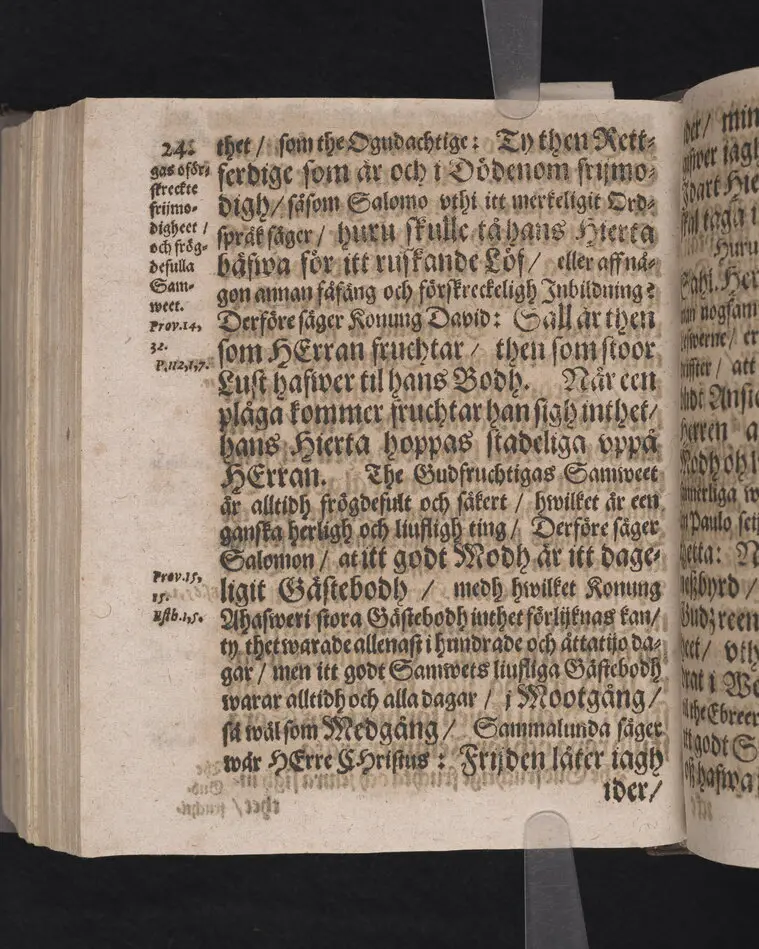 24.
gas oför-
skreckte
frijmo-
digheet /
och frög-
defulla
Sam-
weet.
Prov.14,
32.
P.112,1,7.
Prov.15,
15.
Esth.1,5.
thet / som the Ogudachtige: Ty then Rett-
ferdige som är och i Dödenom frijmo-
digh / såsom Salomo vthi itt merkeligit Ord-
språk säger / huru skulle tå hans Hierta
bäfwa för itt ruskande Löf / eller aff nå-
gon annan fåfäng och förskreckeligh Inbildning?
Derföre säger Konung David: Säll är then
som HErran fruchtar / then som stoor
Lust hafwer til hans Bodh. När een
plåga kommer fruchtar han sigh inthet /
hans Hierta hoppas stadeliga vppå
HErran. The Gudfruchtigas Samweet
är alltidh frögdefult och säkert / hwilket är een
ganska herligh och liufligh ting / Derföre säger
Salomon / at itt godt Modh är itt dage-
ligit Gästebodh / medh hwilket Konung
Ahasweri stora Gästebodh inthet förlijknas kan /
ty thet warade allenast i hundrade och åttatijo da-
gar / men itt godt Samwets liufliga Gästebodh
warar alltidh och alla dagar / j Mootgång /
så wäl som Medgång / Sammalunda säger
wår HErre CHristus: Frijden låter iagh
ider /
der / min
Huru
Sahl. Her
nogsam
/ att
Herren
the Ebreer
godt S
hafwa